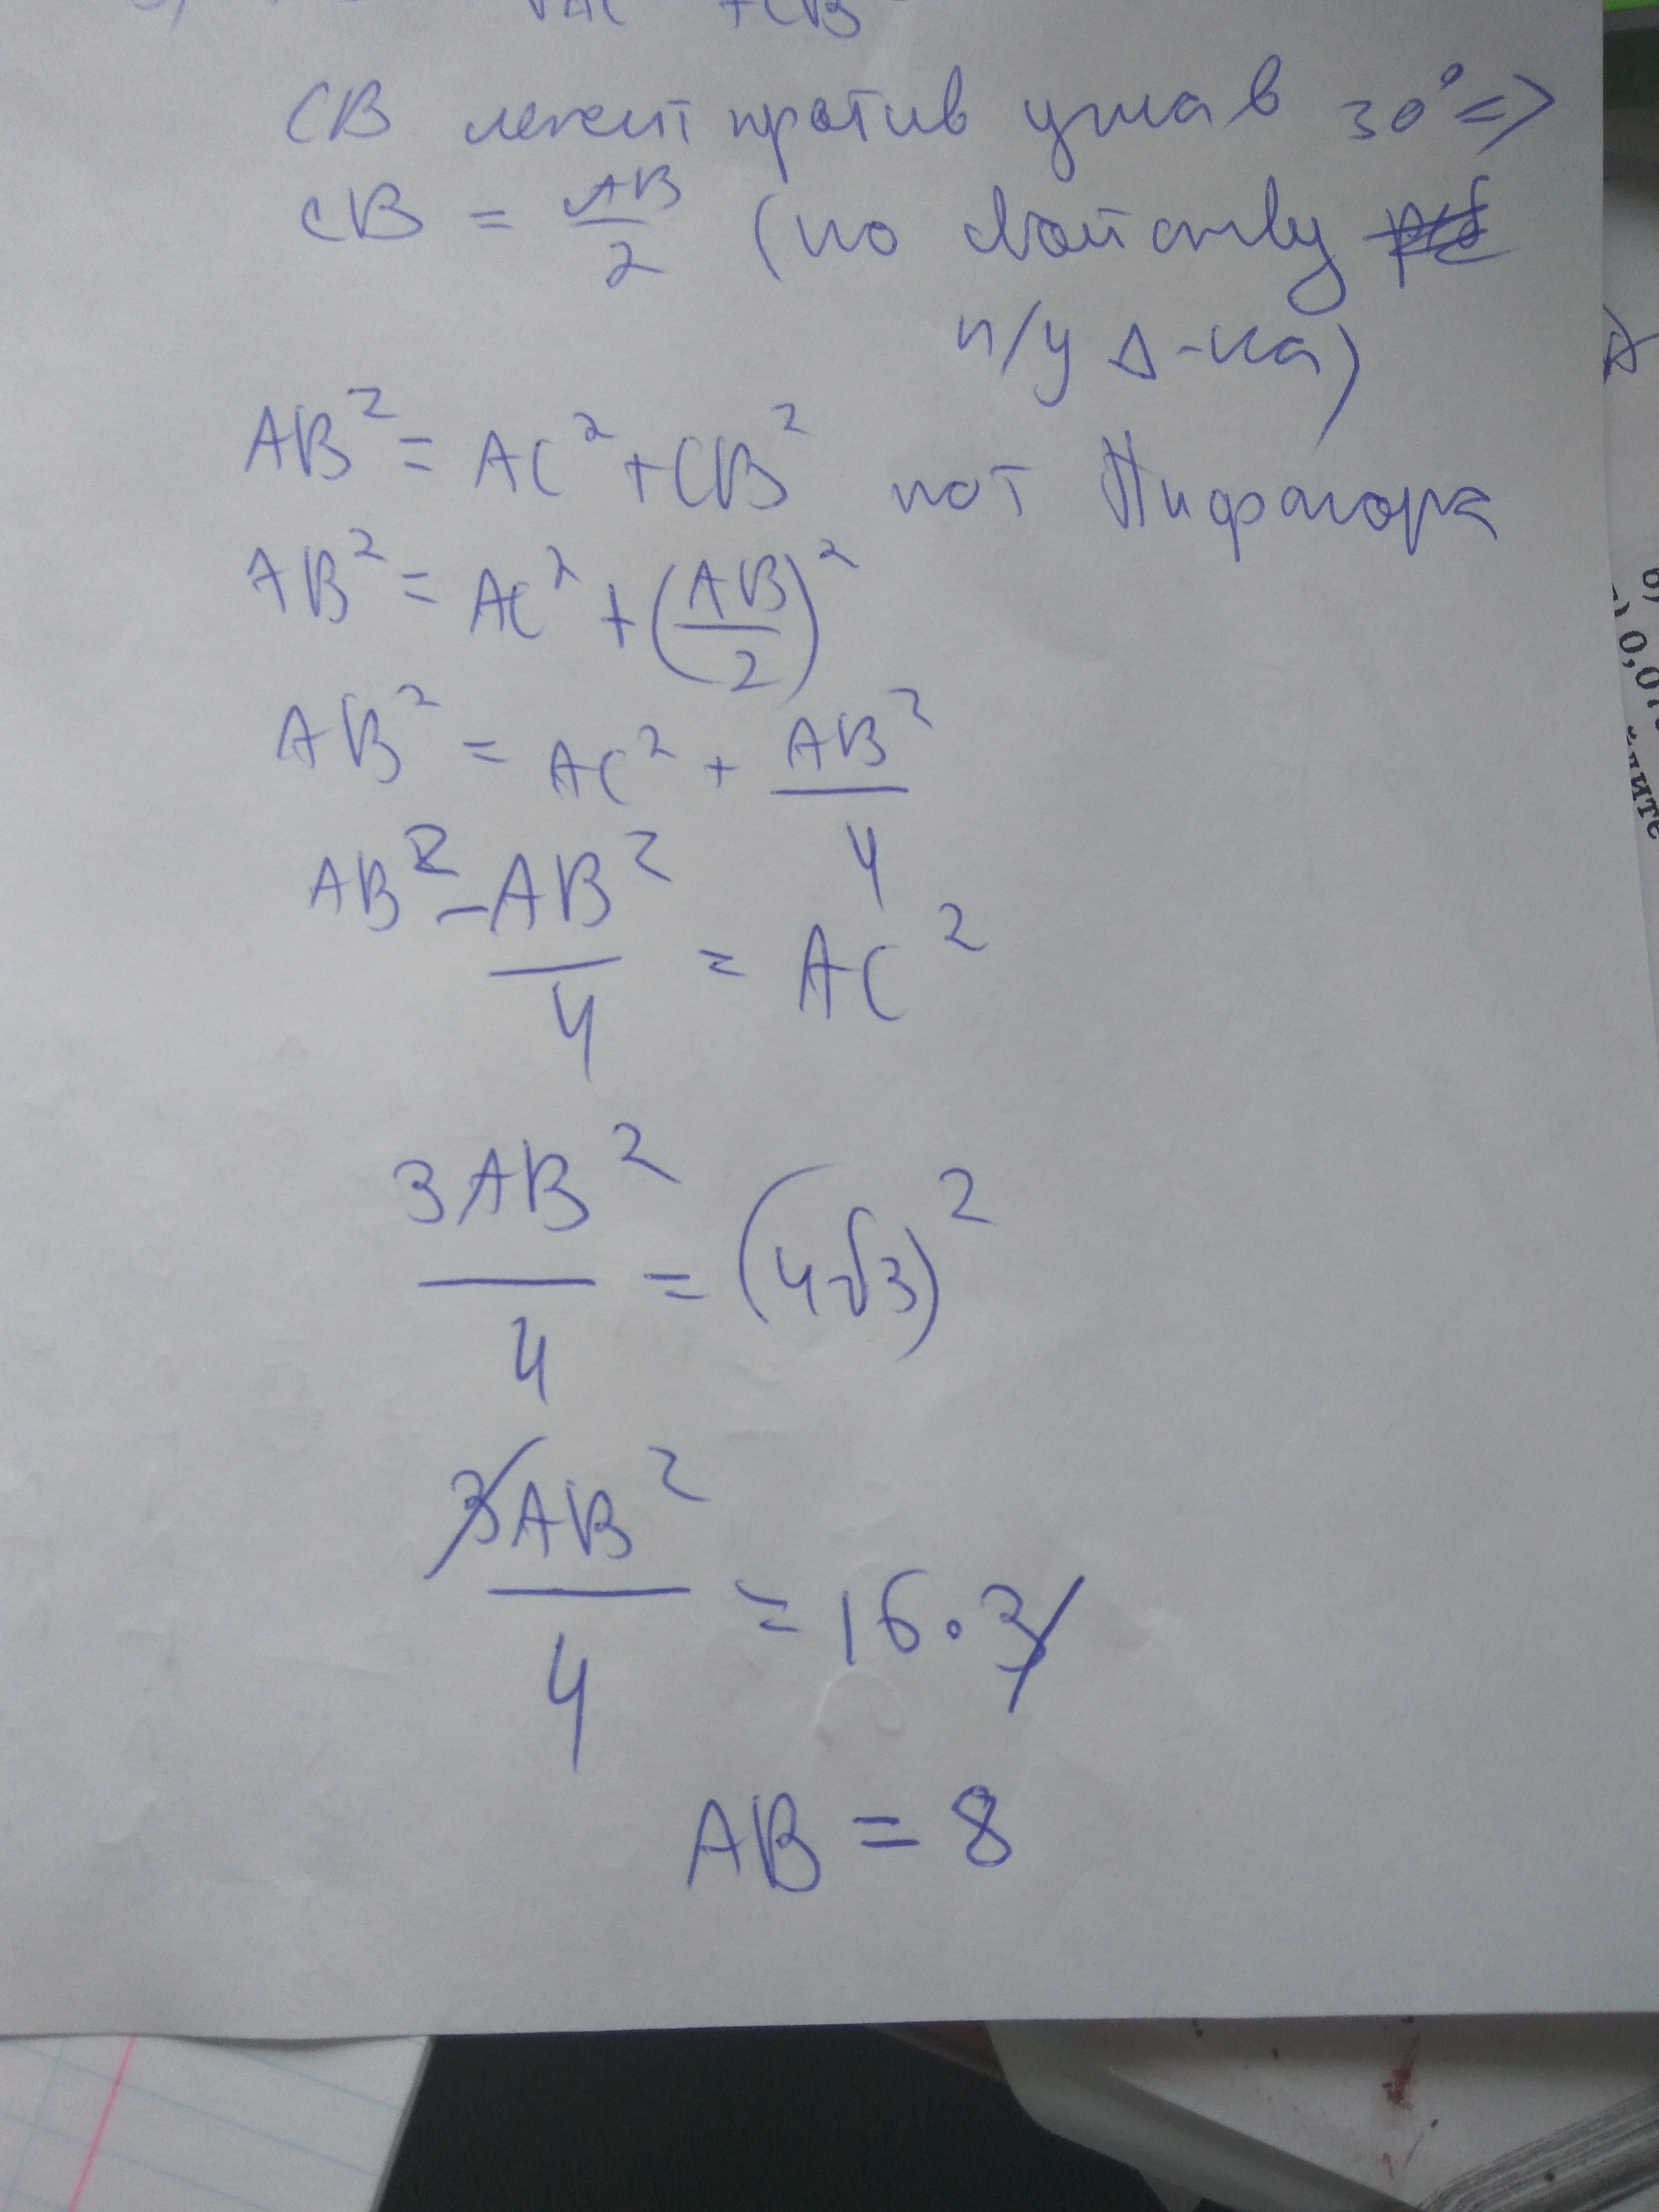 √AC² + CB²
CB лежит против угла в 30° =>
CB = AB/2 (по свойству
п/у Δ-ка)
AB² = AC² + CB² по т Пифагора
AB² = AC² + (AB/2)²
AB² = AC² + AB²/4
AB² - AB²/4 = AC²
3AB²/4 = (4√3)²
3AB²/4 = 16·3
AB = 8